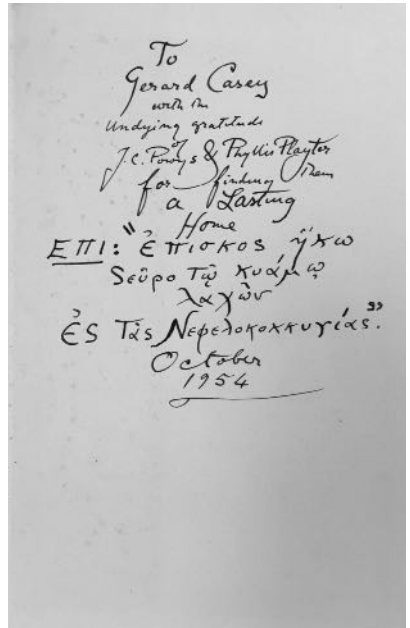 To
Gerard Casey
with the
undying gratitude
of
J.C. Powys & Phyllis Playter
for finding them
a Lasting
Home
ΕΠΙ: "ἐπισκοπος ἥκω
δεῦρο τῷ κυάμῳ
λαχὼν
ἐς τὰς Νεφελοκοκκυγίας".
October
1954